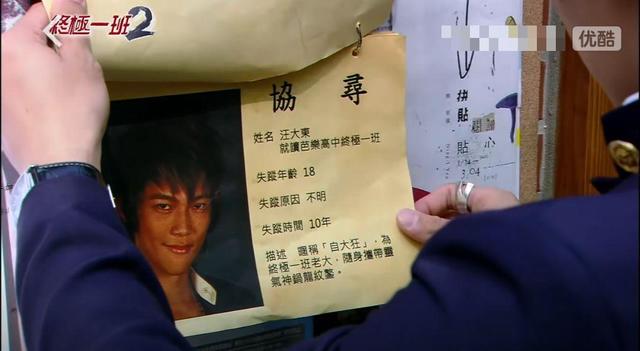 終極一班2
优酷
協尋
姓名 汪大東
就讀芭樂高中終極一班
失蹤年齡 18
失蹤原因 不明
失蹤時間 10年
描述 踂稱「自大狂」，為
終極一班老大，隨身攜帶靈
氣神鍋龍紋鏊。
拼貼
貼心